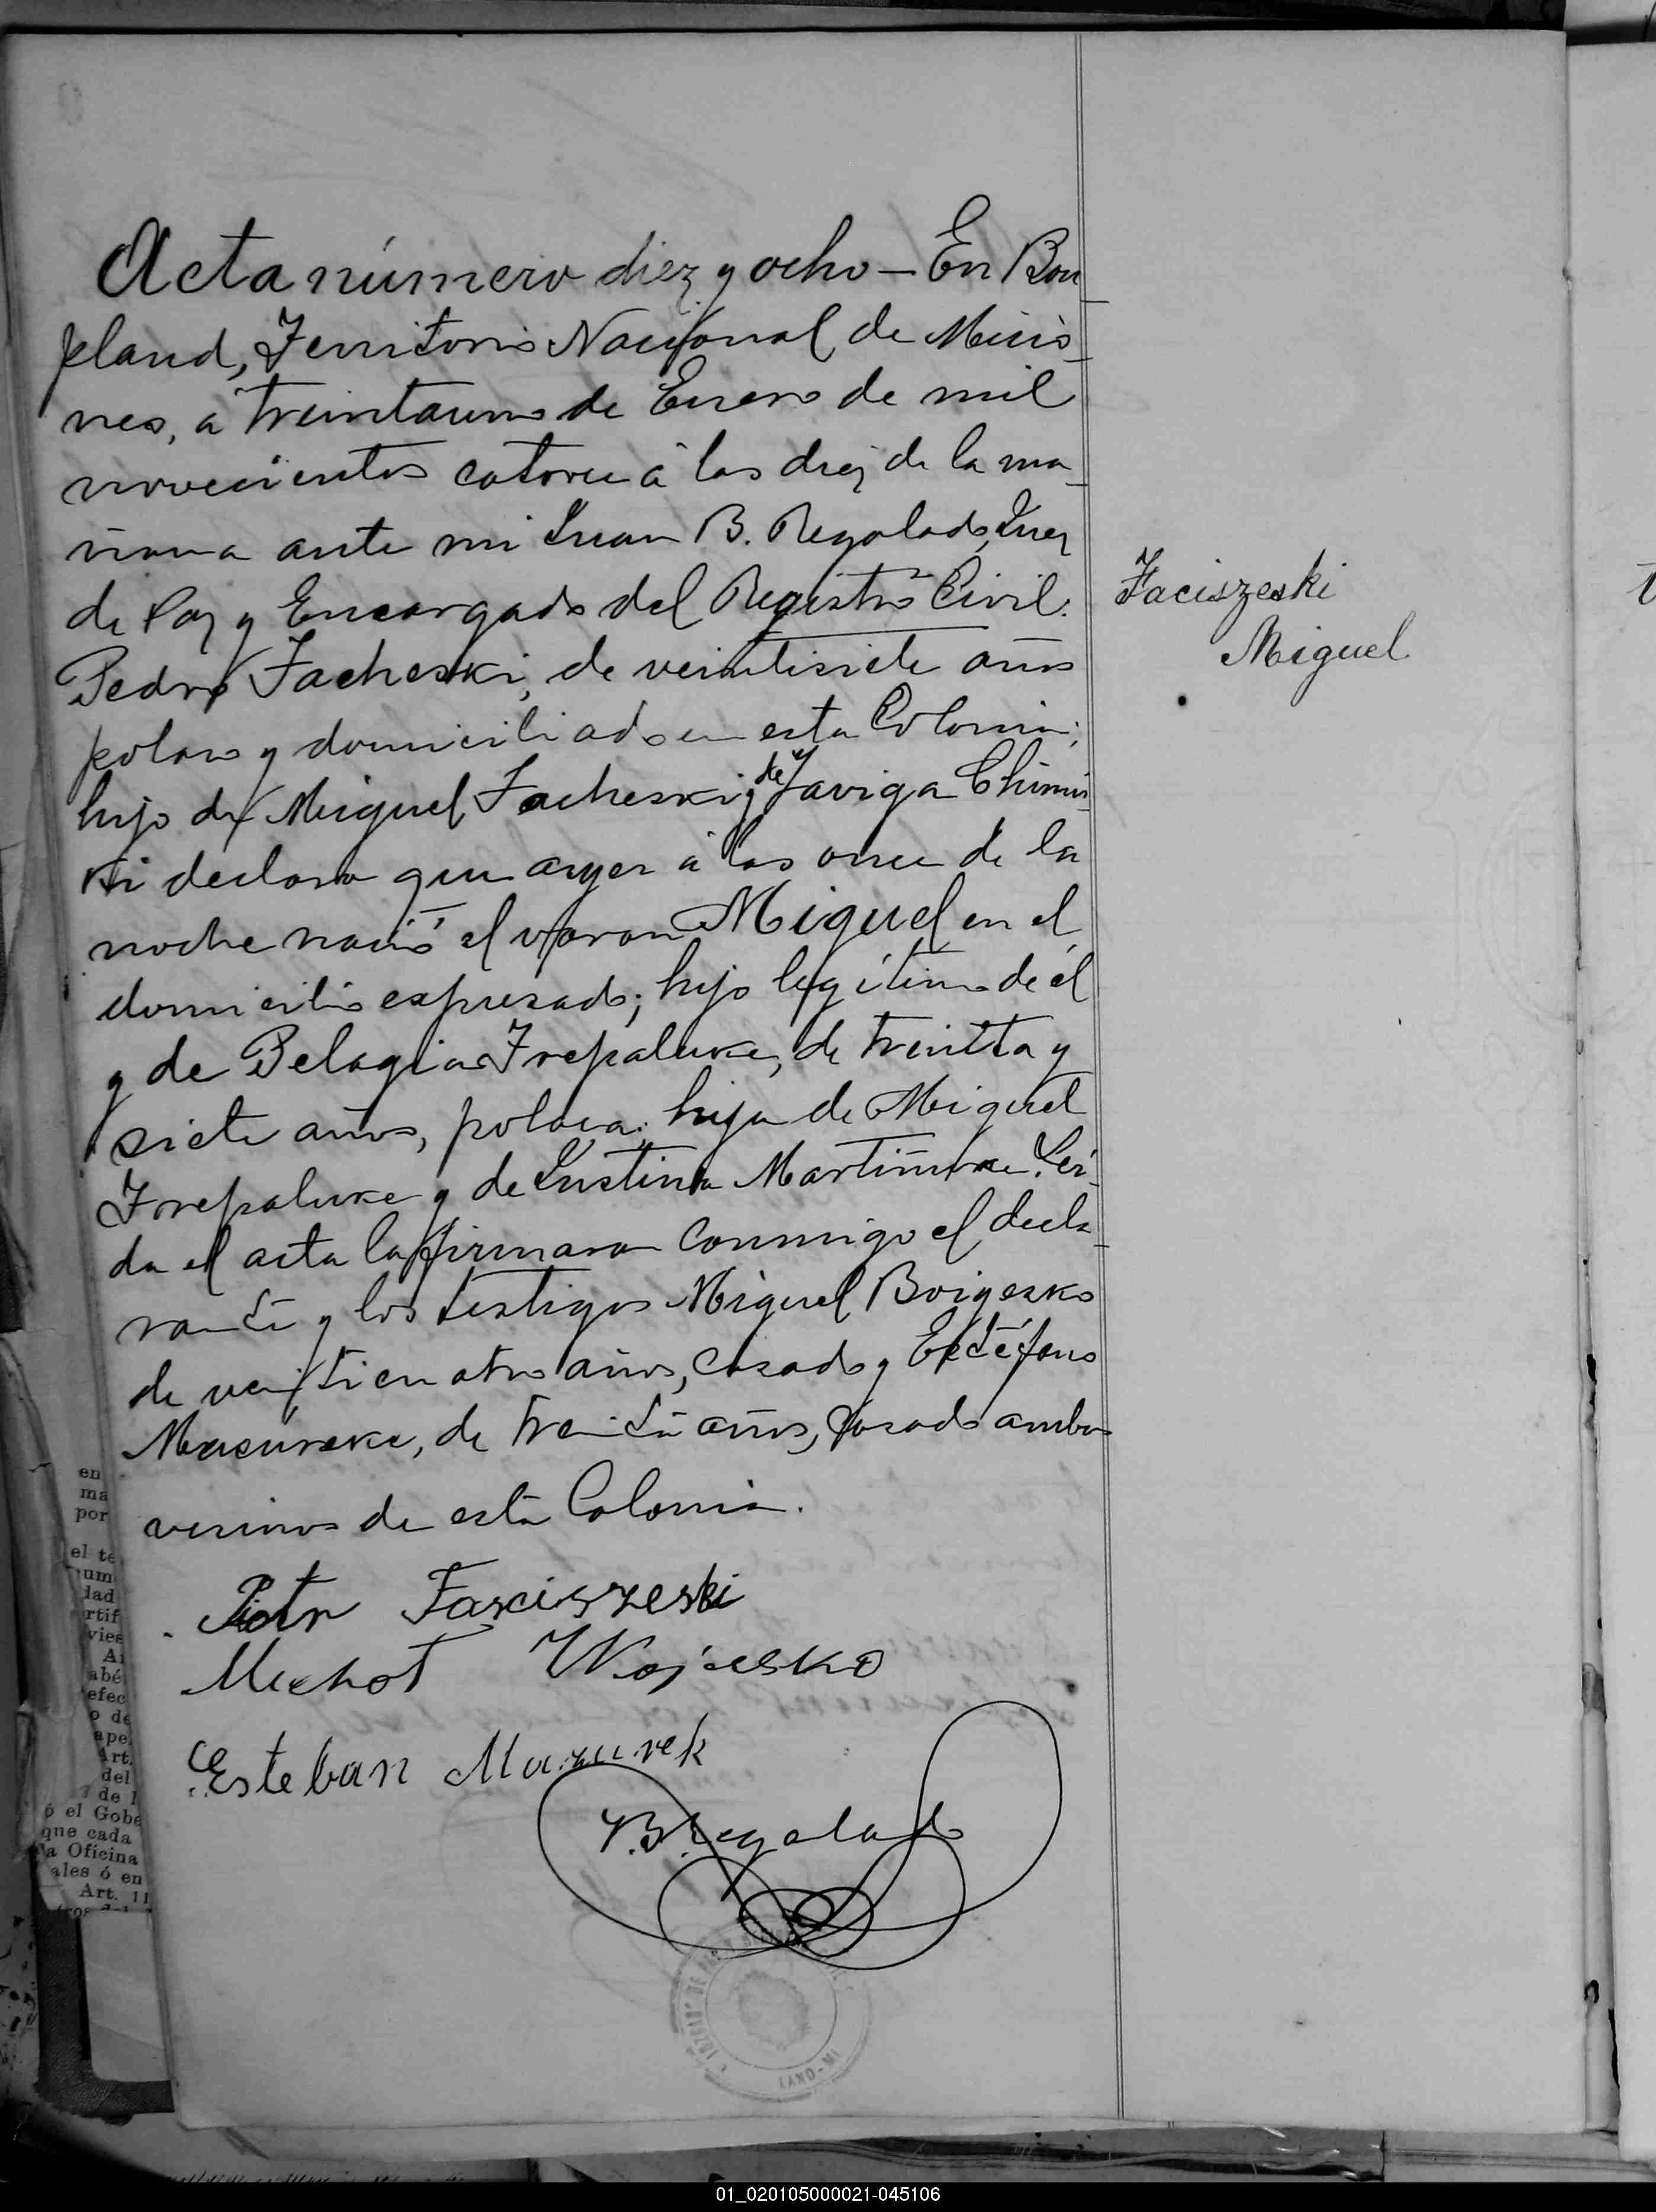 Acta número diez y ocho — En Bon
pland, Territorio Nacional de Misio-
nes, á treintauno de Enero de mil
novecientos catorce á las diez de la ma-
ñana ante mi Juan B. Regalado, Juez
de Paz y Encargado del Registro Civil.
Pedro Facheski, de veintisiete años
polaco y domiciliado en esta Colonia;
hijo de Miguel Facheski y de Javiga Chimis-
ki declaro que ayer á las once de la
noche nació el varon Miguel en el
domicilio expresado; hijo legítimo de él
y de Pelagia Trepaluke, de treinta y
siete años, polaca; hija de Miguel
Trepaluke y de Justina Lei-
da el acta la firmaron conmigo el decla-
rante y los testigos Miguel Boigesko
de veinticuatro años, casado y Estéfano
de treinta años, casado ambos
vecinos de esta Colonia.
Faciszeski
Miguel
Piotr Faxciszeski
Michot Wojcesko
Esteban Mazurek
B Regalado
en
ma
por
el te
um
dad
rtif
vies
abé
efec
o de
ape
Art.
del
de l
ó el Gobe
que cada
a Oficina
ales ó en
Art. 11
01_020105000021-045106